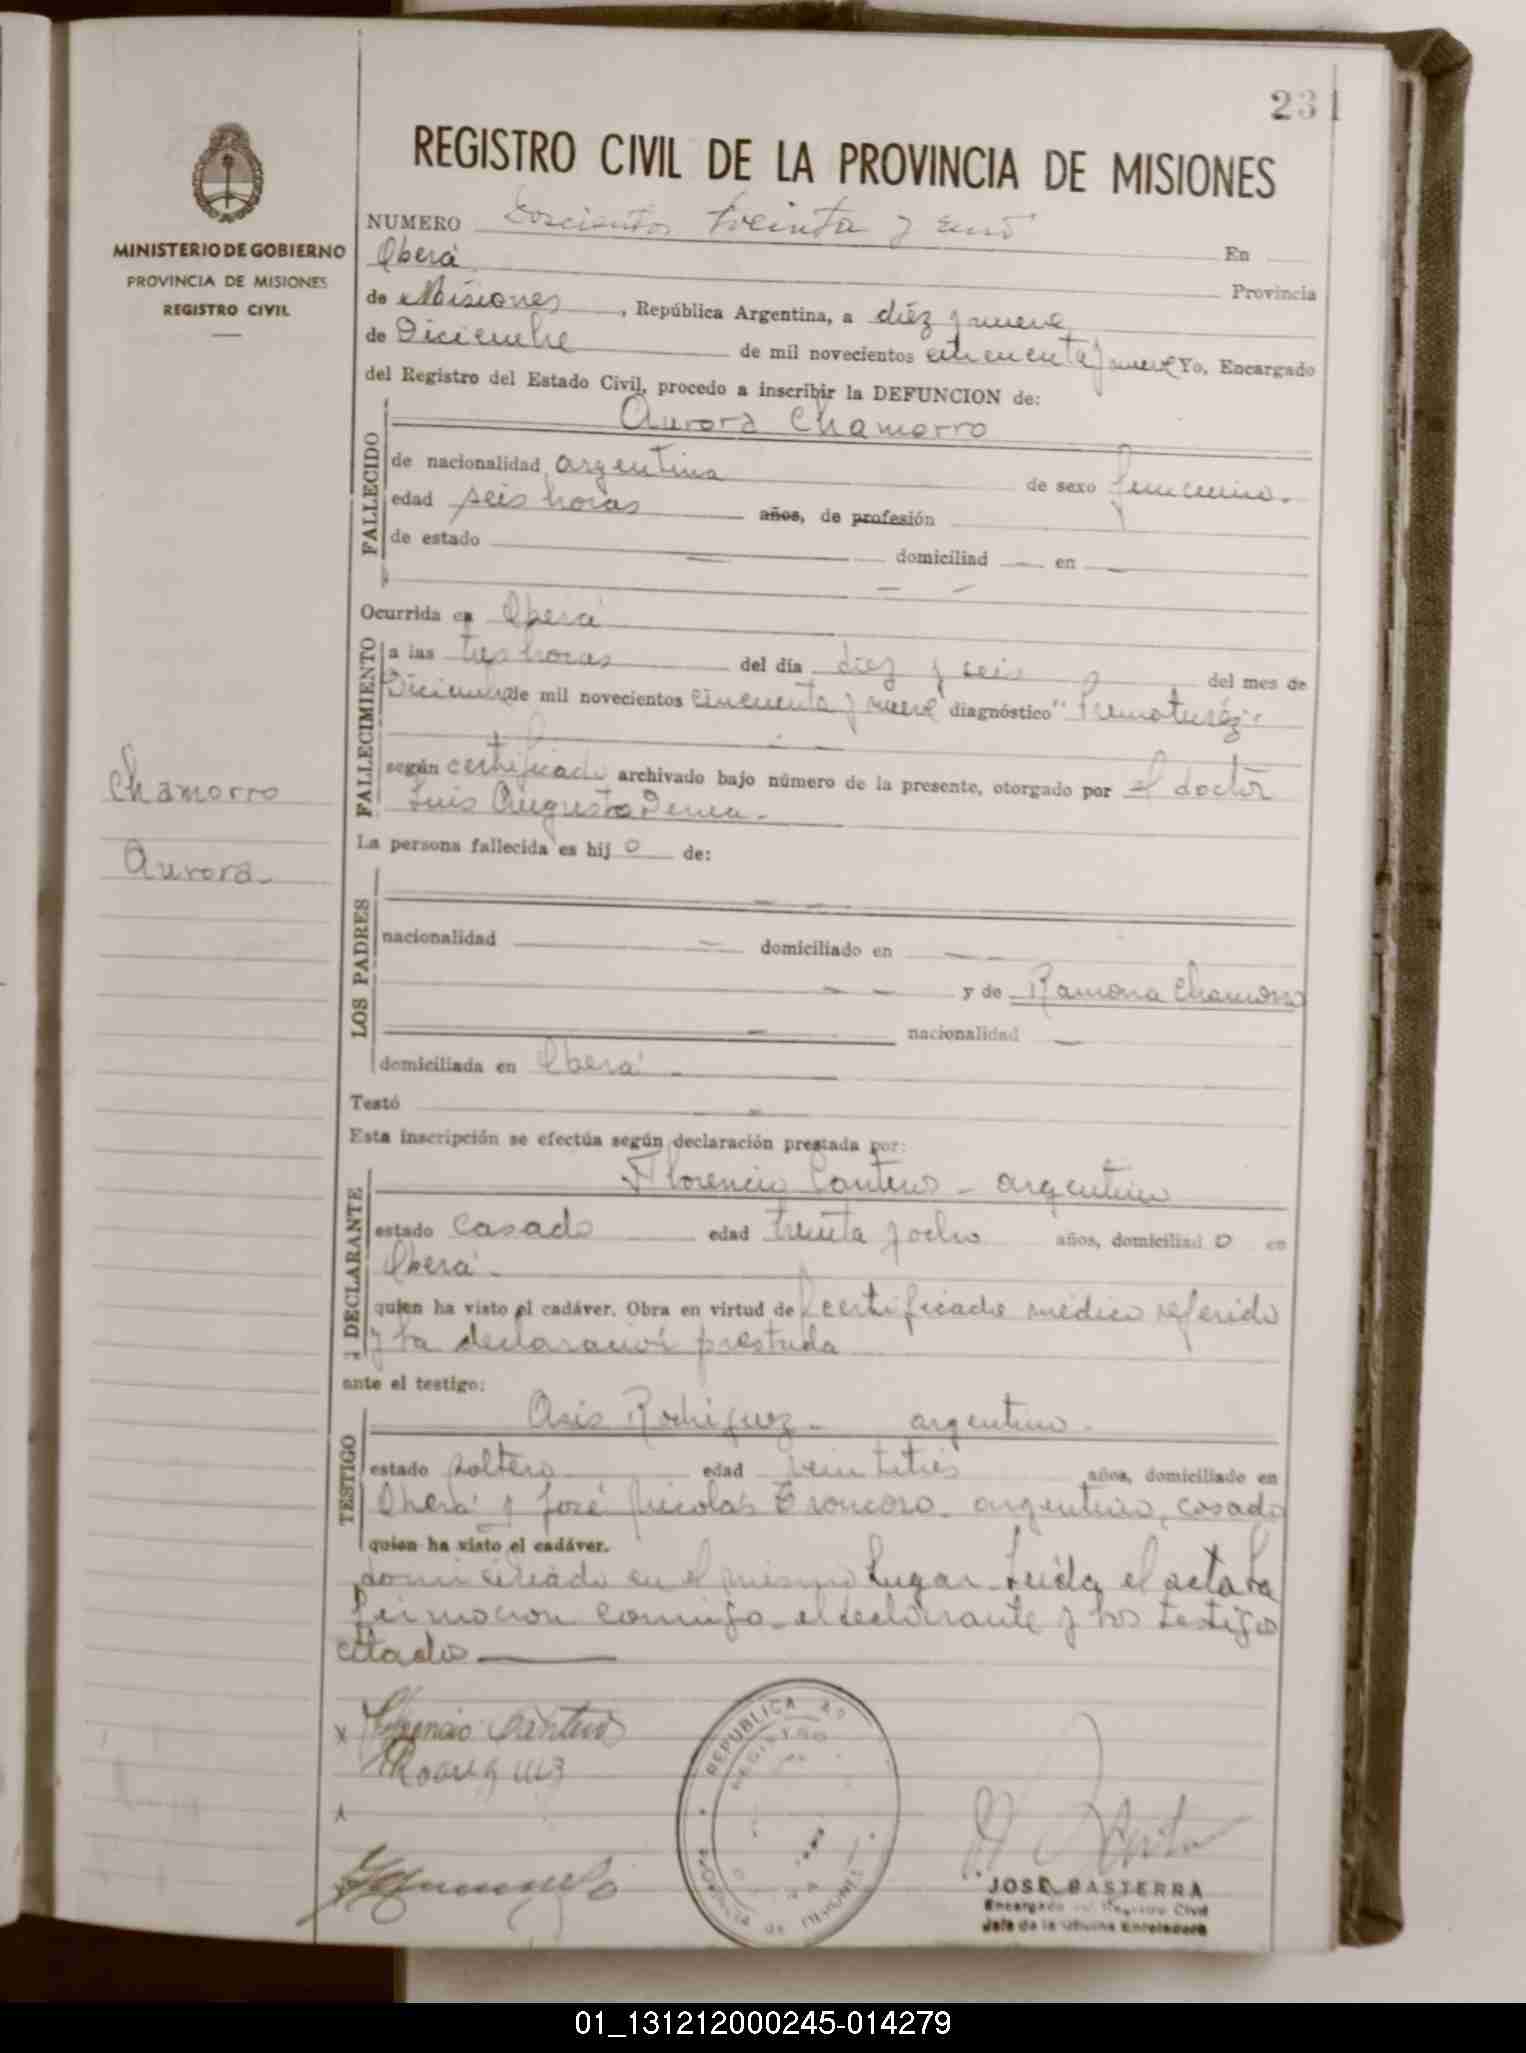 231
REGISTRO CIVIL DE LA PROVINCIA DE MISIONES
MINISTERIO DE GOBIERNO
PROVINCIA DE MISIONES
REGISTRO CIVIL
NUMERO Doscientos treinta y uno En
Oberá Provincia
de Misiones, República Argentina, a diéz y nueve
de Diciembre de mil novecientos cincuenta y nueve Yo, Encargado
del Registro del Estado Civil, procedo a inscribir la DEFUNCION de:
Aurora Chamorro
FALLECIDO
de nacionalidad argentina de sexo femenino.
edad seis horas años, de profesión
de estado domiciliad en
Ocurrida en Oberá
FALLECIMIENTO
a las tres horas del día diez y seis del mes de
Diciembre de mil novecientos cincuenta y nueve diagnóstico "Prematuréz"
según certificado archivado bajo número de la presente, otorgado por el doctor
Luis Augusto
Chamorro
Aurora
La persona fallecida es hij o de:
LOS PADRES
nacionalidad domiciliado en
y de Ramona Chamorro
nacionalidad
domiciliada en Oberá
Testó
Esta inscripción se efectúa según declaración prestada por:
Florencio Cantero - argentino
DECLARANTE
estado casado edad treinta y ocho años, domiciliad o en
Oberá
quien ha visto el cadáver. Obra en virtud de certificado médico referido
y la declaración prestada
ante el testigo:
Asis Rodriguez - argentino.
TESTIGO
estado soltero edad veintitrés años, domiciliado en
Oberá y José Nicolás Troncoso - argentino, casado
quien ha visto el cadáver.
domiciliado en el mismo lugar. Leída el acta la
firmaron conmigo el declarante y los testigos
citados
x Florencio Cantero
Rodriguez
REPUBLICA
REGISTRO
PROVINCIA DE MISIONES
JOSE BASTERRA
Encargado del Registro Civil
Jefe de la Oficina Enroladora
01_131212000245-014279